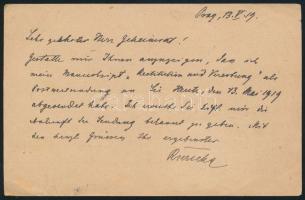 Prag, 13.V.19.
Sehr geehrter Herr Geheimrat!
Gestatte mir Ihnen anzuzeigen, dass ich
mein Manuscript "Restitution und Vererbung" als
Postwertsendung an Sie Heute, den 13. Mai 1919
abgesendet habe. Ich ersuche Sie mir die
Ankunft der Sendung bekannt zu geben. Mit
den herzl. Grüssen Ihr ergebenster
Růžička